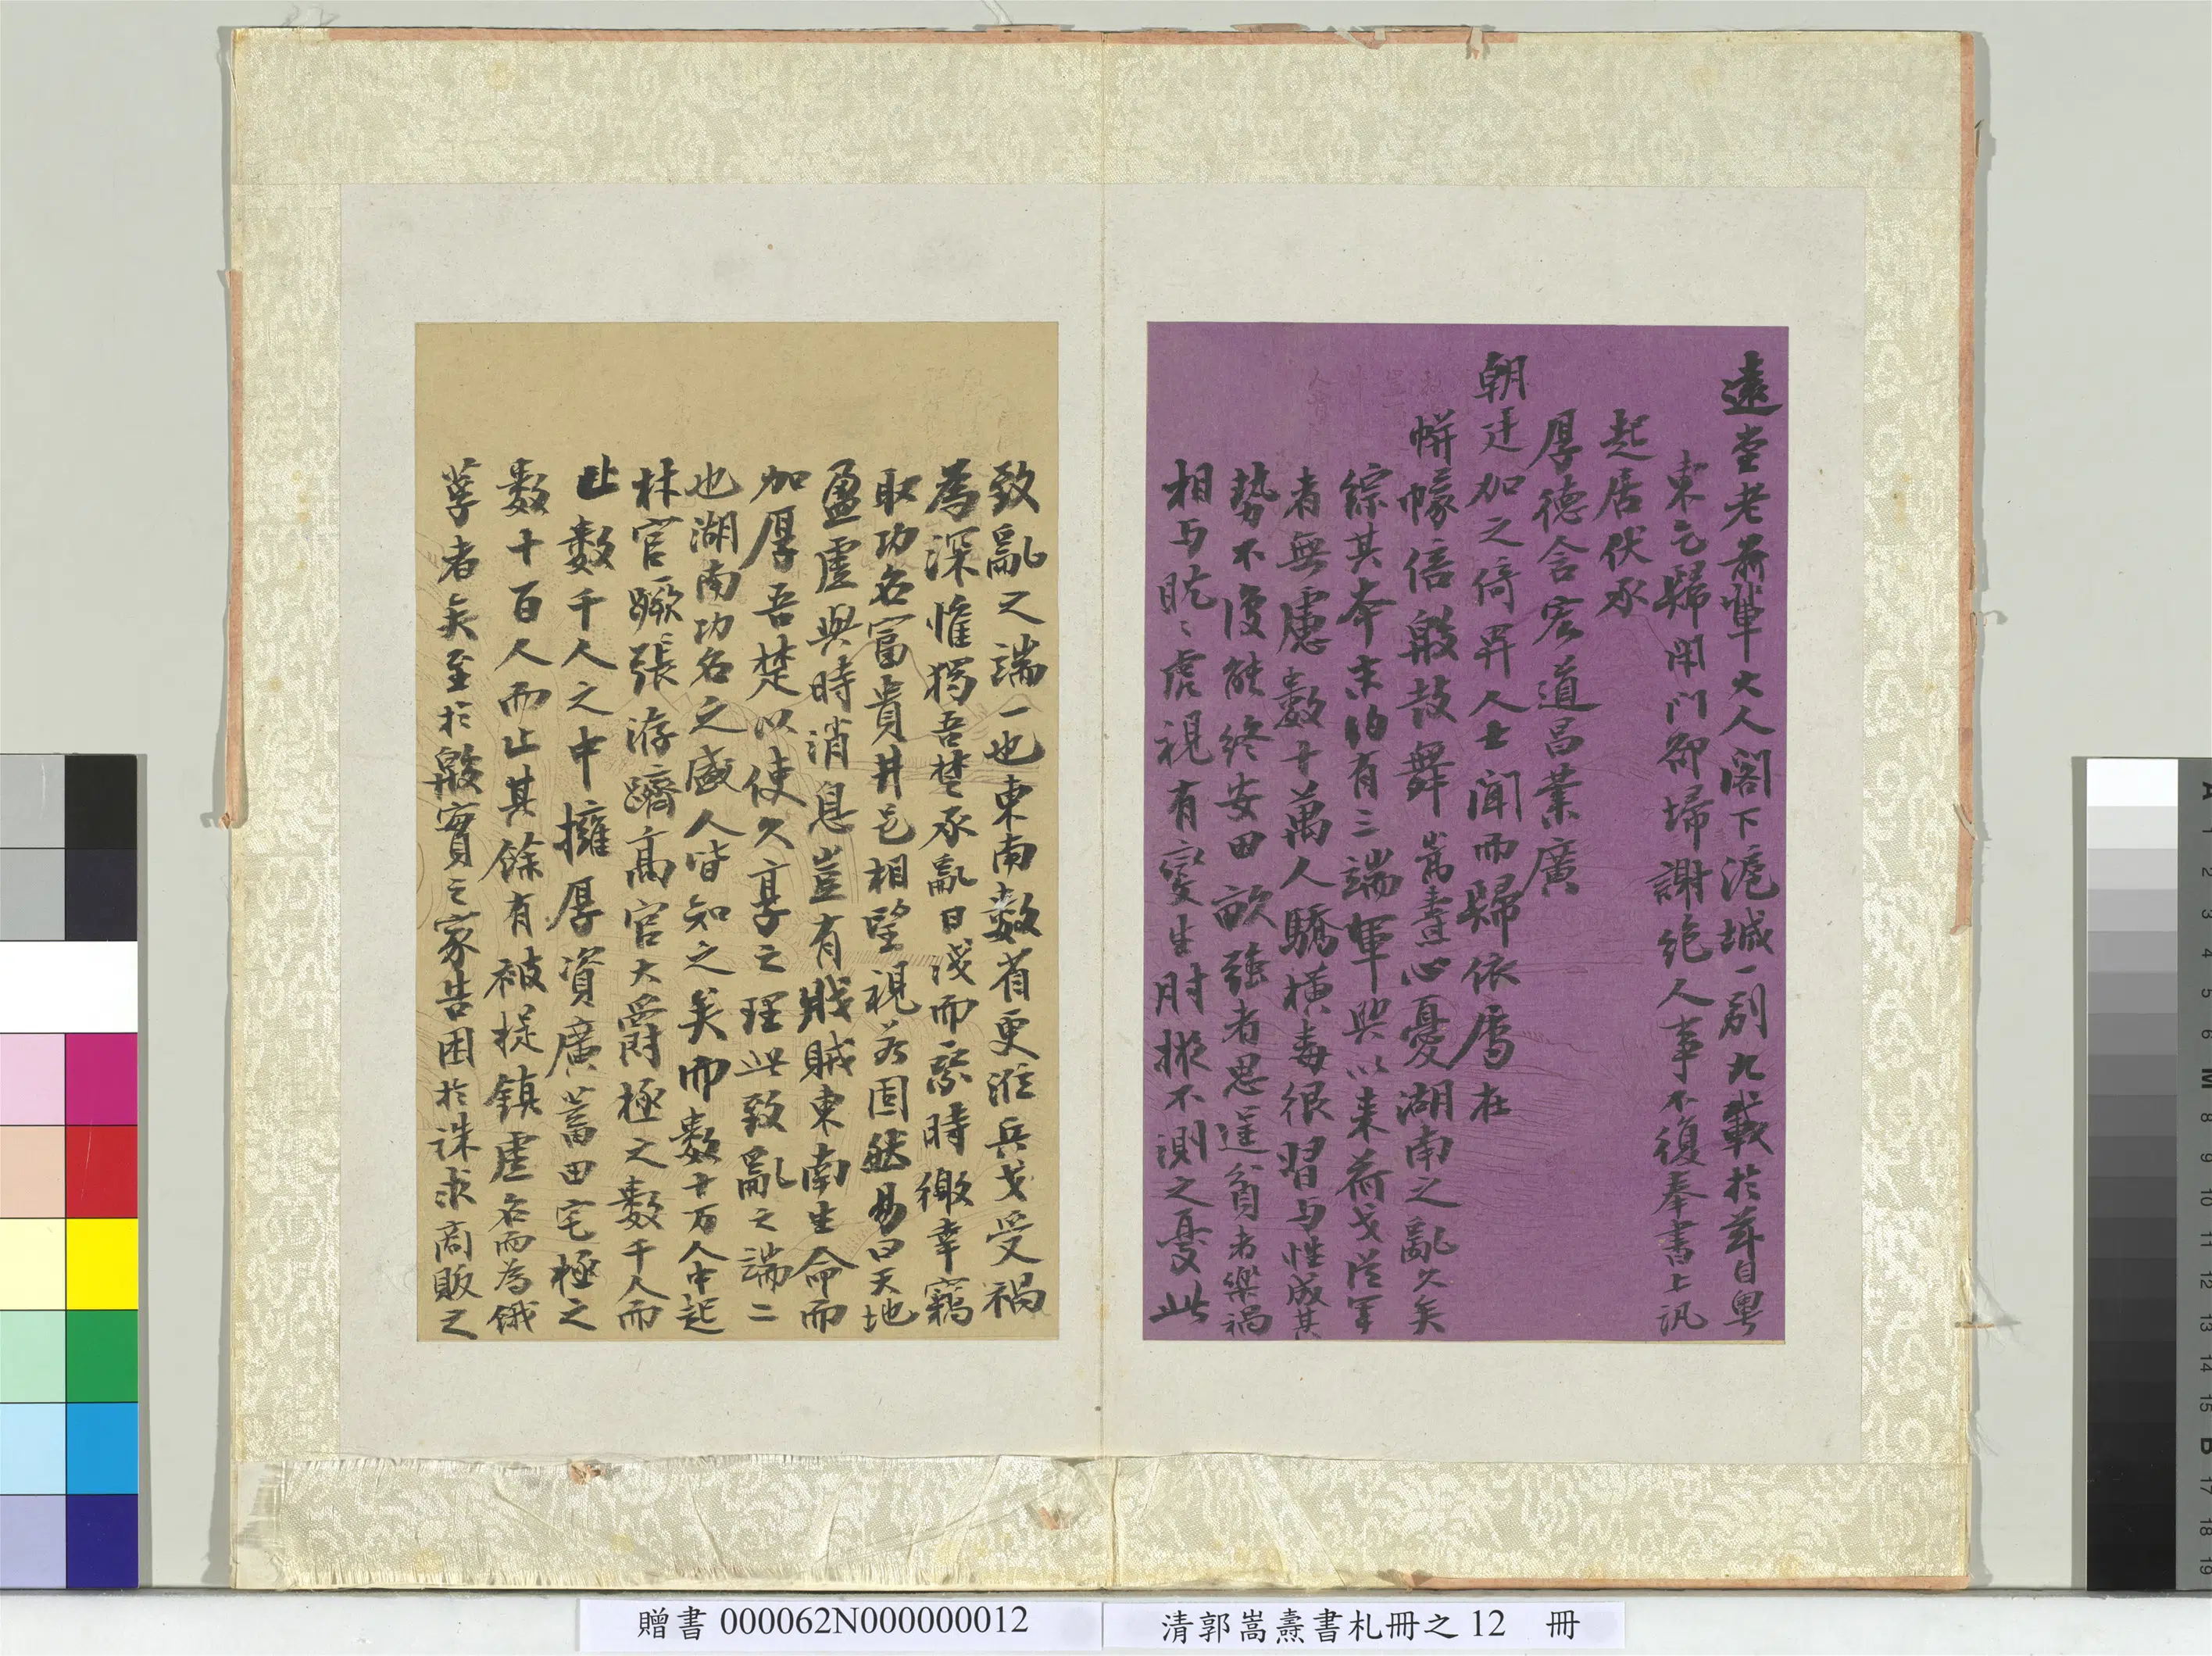 遠堂老前輩大人閣下滬城一別九載於茲自粵
東乞歸閉門卻埽謝絕人事不復奉書上訊
起居伏承
厚德含宏道昌業廣
朝廷加之倚畀人士聞而歸依
帡幪倍殷鼓舞嵩燾心憂湖南之亂久矣
綜其本末約有三端軍興以來荷戈從軍
者無慮數十萬人驕橫毒很習与性成其
勢不復能終安田畝強者思逞貧者樂禍
相与眈〻虎視有變生肘掖不測之憂此
致亂之端一也東南數省更涖兵戈受禍
為深惟獨吾楚承亂日淺而乘時徼幸竊
取功名富貴井邑相望視若固然易曰天地
盈虛與時消息豈有戕賊東南生命而
加厚吾楚以使久享之理此致亂之端二
也湖南功名之盛人皆知之矣而數十万人中起
材官蹶張洊躋高官大爵極之數千人而
止數千人之中擁厚資廣蓄田宅極之
數十百人而止其餘有被提鎮虛名而為餓
莩者矣至於殷實之家告困於誅求商販之
贈書 000062N000000012
清郭嵩燾書札冊之 12 冊